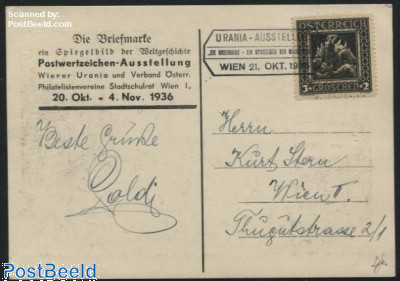 Scanned by PostBeeld
Copyright
www.postbeeld.com
Die Briefmarke
ein Spiegelbild der Weltgeschichte
Postwertzeichen-Ausstellung
Wiener Urania und Verband Österr.
Philatelistenvereine Stadtschulrat Wien I.,
20. Okt. - 4. Nov. 1936
URANIA - AUSSTELL
DIE BRIEFMARKE - EIN SPIEGELBILD DER
WIEN 21. OKT. 19
ÖSTERREICH
3 GROSCHEN 2
Beste Grüsse
Poldi
Herrn
Kurt Stern
Wien II.
Thugutstrasse 2/1
PostBeeld
PostBeeld